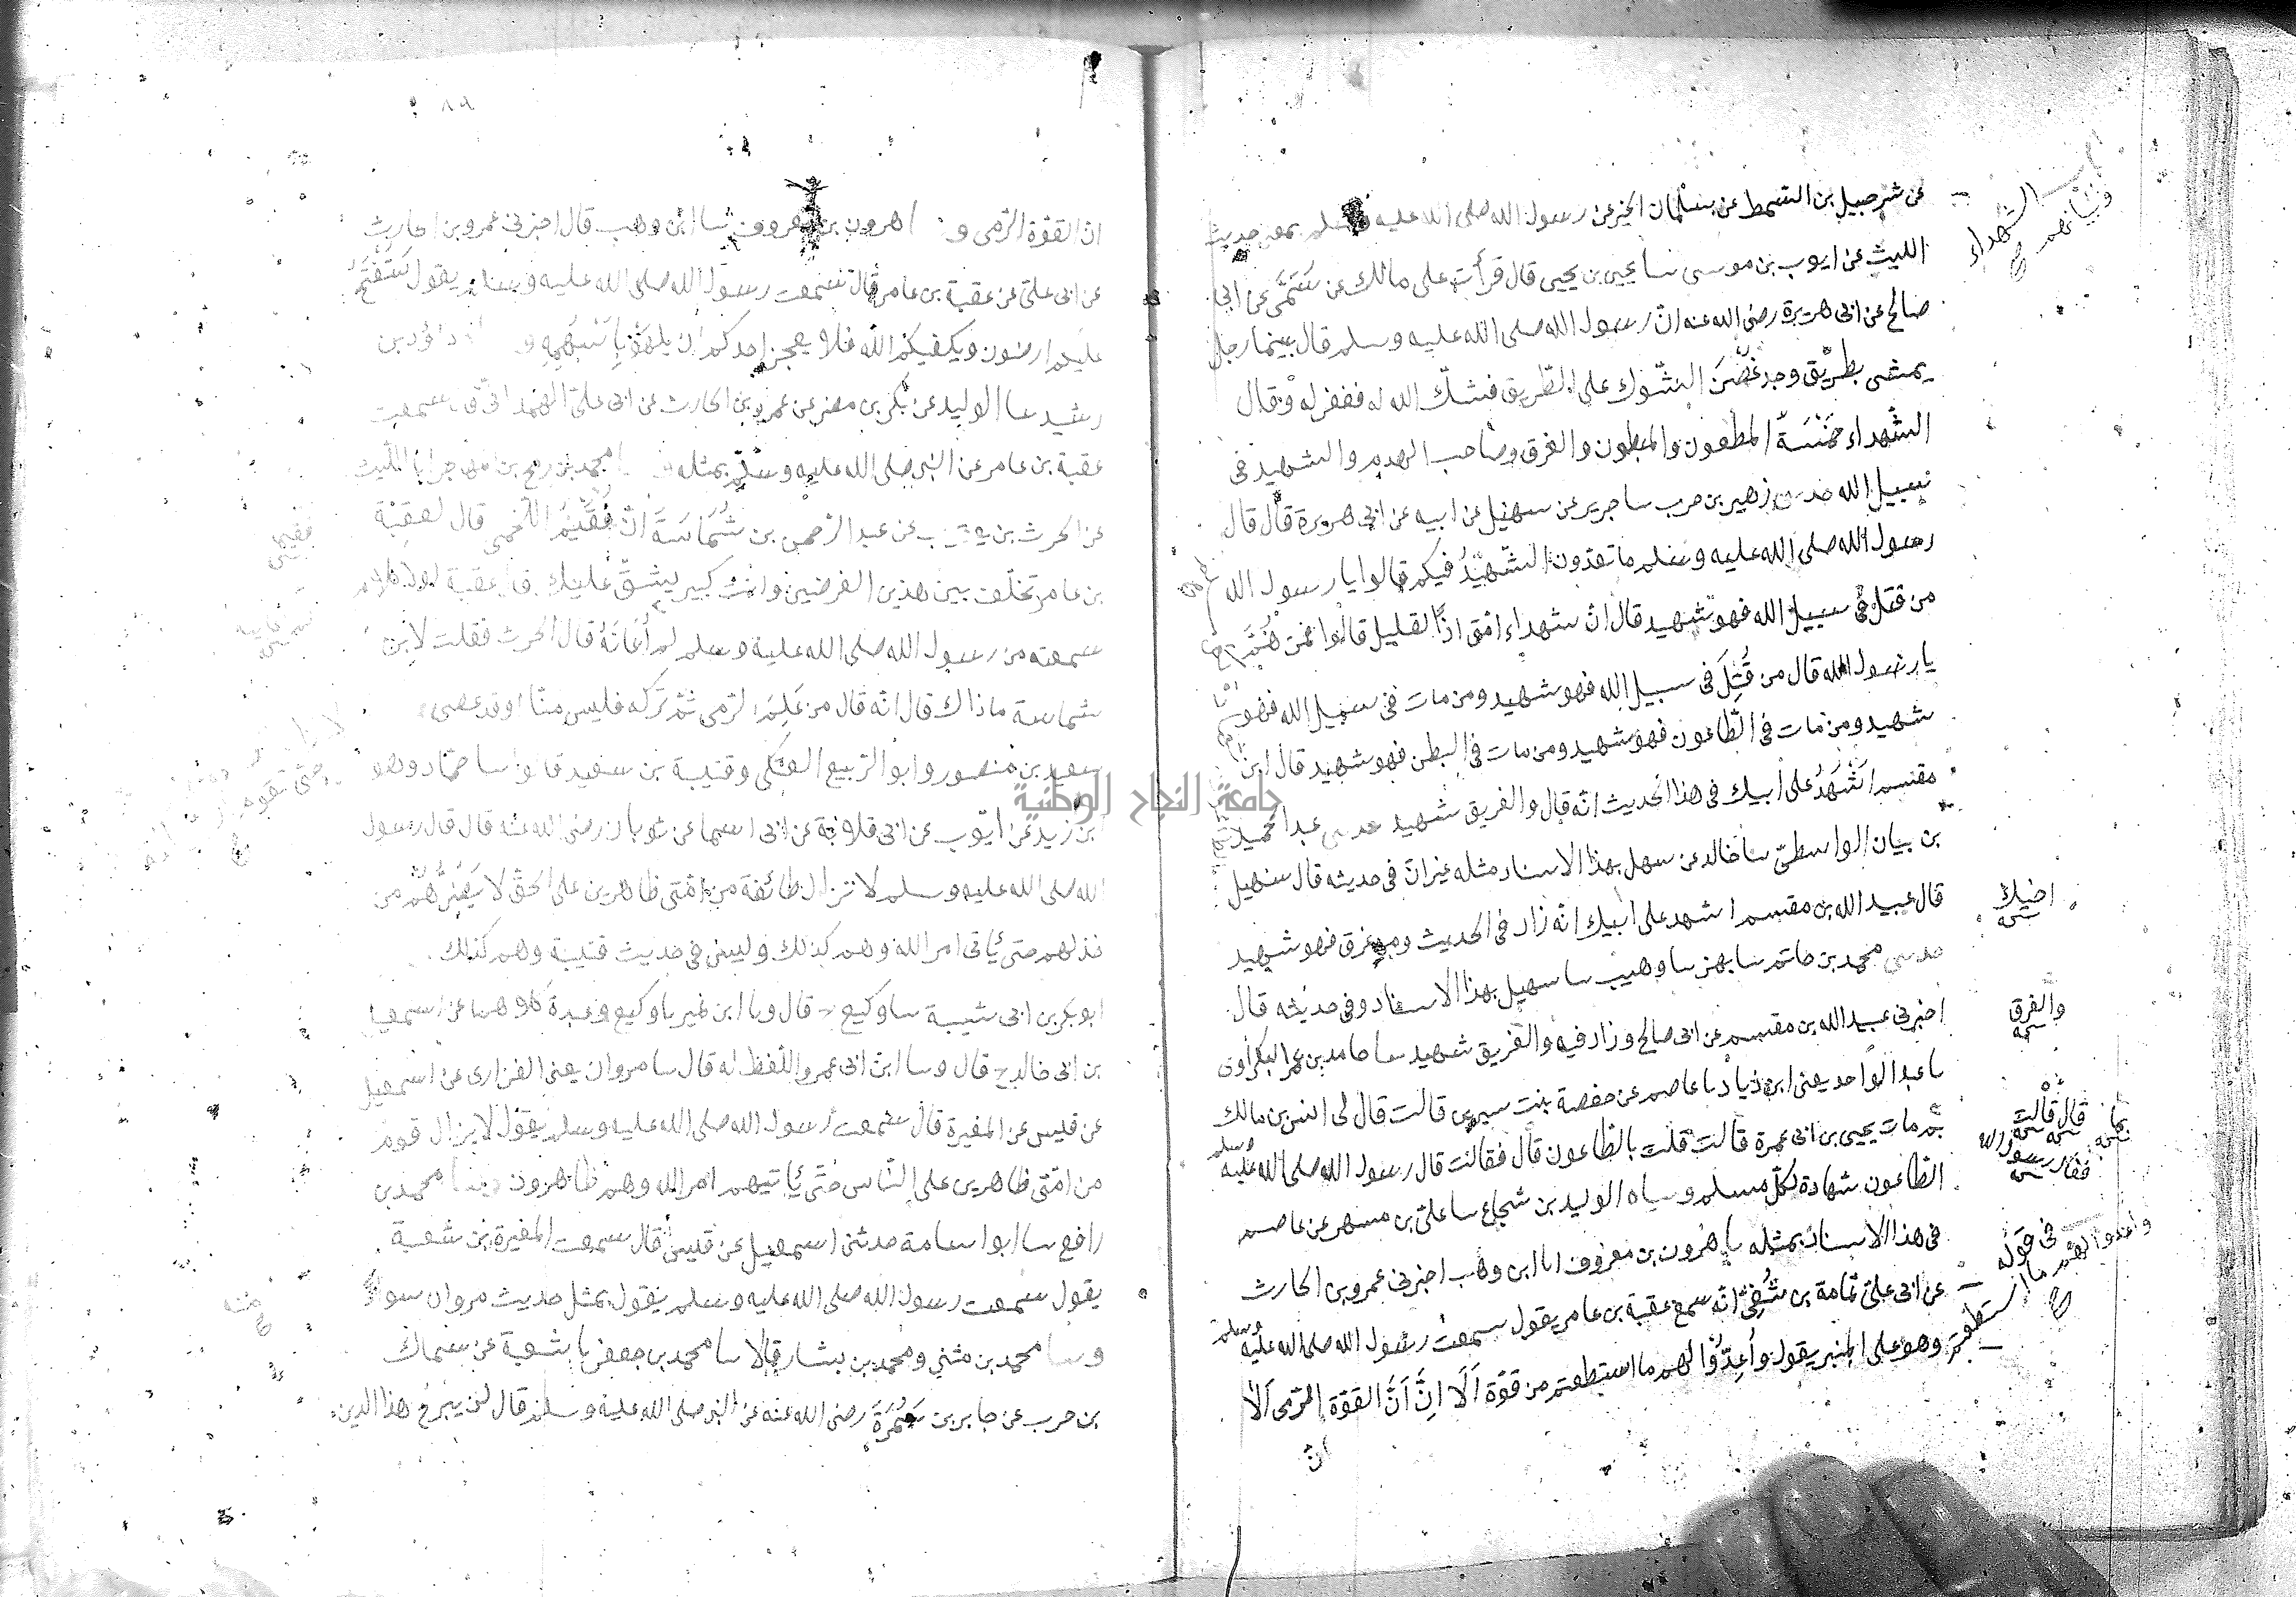 باب الشهداء
وبيانهم
عن شرحبيل بن السمط عن سلمان الخير عن رسول الله صلى الله عليه وسلم بمعنى حديث
الليث عن ايوب بن موسى سا يحيى بن يحيى قال قرأت على مالك عن سُمَىّ عن ابى
صالح عن ابى هريرة رضى الله عنه انّ رسول الله صلى الله عليه وسلم قال بينما رجل
يمشى بطريق وجد غصن الشوك على الطريق فشكّ الله له فغفر له وقال
الشهداء خمسة المطعون والمبطون والغرق وصاحب الهدم والشهيد فى
سبيل الله حدسى زهير بن حرب سا جرير عن سهيل عن ابيه عن ابى هريرة قال قال
رسول الله صلى الله عليه وسلم ما تعدّون الشّهيد فيكم قالوا يا رسول الله
من قتل فى سبيل الله فهو شهيد قال انّ شهداء امّتى اذًا لقليل قالوا فمن هُمْ
يا رسول الله قال من قُتِلَ فى سبيل الله فهو شهيد ومن مات فى سبيل الله فهو
شهيد ومن مات فى الطّاعون فهو شهيد ومن مات فى البطن فهو شهيد قال ابن
مقسم اَشْهَدُ على ابيك فى هذا الحديث انّه قال والغريق شهيد حدسى عبد الحميد
بن بيان الواسطىّ سا خالد عن سهل بهذا الاسناد مثله غير انّ فى حديثه قال سهيل
قال عبيد الله بن مقسم اشهد على ابيك انه زاد فى الحديث ومن غرق فهو شهيد
حدسى محمد بن حاتم سا بهز سا وهيب سا سهيل بهذا الاسناد وفى حديثه قال
اخبرنى عبيد الله بن مقسم عن ابى صالح وزاد فيه والغريق شهيد سا حامد بن عمر البكراوى
سا عبد الواحد يعنى ابن زياد سا عاصم عن حفصة بنت سيرين قالت قال لى انس بن مالك
بمَ مات يحيى بن ابى عمرة قالت قلت بالطّاعون قال فقالت قال رسول الله صلى الله عليه وسلم
الطّاعون شهادة لكلّ مسلم وساه الوليد بن شجاع سا علىّ بن مسهر عن عاصم
فى هذا الاسناد بمثله سا هٰرون بن معروف اسا ابن وهب اخبرنى عمرو بن الحارث
عن ابى علىّ ثمامة بن شُفَىّ انّه سمع عقبة بن عامر يقول سمعت رسول الله صلى الله عليه وسلم
وهو على المنبر يقول وأعدّوا لهم ما استطعتم من قوّة اَلَا اِنَّ اَنَّ القوّة الرّمى اَلَا
انّ
اخيك
والغرق
قال قالت
بما
فقال رسول الله
فى قوله
واعدوا لهم ما استطعتم
انّ القوّة الرّمى و هرون بن معروف سا ابن وهب قال اخبرنى عمرو بن الحارث
عن ابى علىّ عن عقبة بن عامر قال سمعت رسول الله صلى الله عليه وسلم يقول سَتُفْتَحُ
عليكم ارضون ويكفيكم الله فلا يعجز احدكم ان يلهو بِاَسْهُمِهِ و داؤد بن
رشيد سا الوليد عن بكر بن مضر عن عمرو بن الحارث عن ابى علىّ الهمدانى ق سمعت
عقبة بن عامر عن النبى صلى الله عليه وسلّم بمثله محمد بن رمح بن المهاجر انا الليث
عن الحرث بن يعقوب عن عبد الرّحمن بن شُمَاسَةَ انّ فُقَيْمًا اللّخمى قال لعقبة
بن عامر تختلف بين هذين الغرضين وانت كبير يشقّ عليك قال عقبة لولا كلام
سمعته من رسول الله صلى الله عليه وسلم لم اُعَانِهُ قال الحرث فقلت لابن
شماسة ما ذاك قال انّه قال من عَلِمَ الرّمى ثمّ تركه فليس منّا او قد عصى
سعيد بن منصور وابو الرّبيع العتكى وقتيبة بن سعيد قالوا سا حمّاد وهو
ابن زيد عن ايّوب عن ابى قلابة عن ابى اسما عن ثوبان رضى الله عنه قال قال رسول
الله صلى الله عليه وسلم لا تزال طائفة من امّتى ظاهرين على الحقّ لا يَضُرُّهُمْ من
خذلهم حتى يأتى امر الله وهم كذلك وليس فى حديث قتيبة وهم كذلك
ابو بكر بن ابى شيبة سا وكيع ح قال وسا ابن نمير سا وكيع وعبدة كلاهما عن اسمعيل
بن ابى خالد ح قال وسا ابن ابى عمر واللّفظ له قال سا مروان يعنى الفزارى عن اسمعيل
عن قليس عن المغيرة قال سمعت رسول الله صلى الله عليه وسلم يقول لا يزال قوم
من امّتى ظاهرين على النّاس حتّى يأتيهم امر الله وهم ظاهرون محمد بن
رافع سا ابو اسامة حدثنى اسمعيل عن قليس قال سمعت المغيرة بن شعبة
يقول سمعت رسول الله صلى الله عليه وسلم يقول بمثل حديث مروان سوا
وسا محمد بن مثنى ومحمد بن بشار قالا سا محمد بن جعفر سا شعبة عن سماك
بن حرب عن جابر بن سَمُرَةَ رضى الله عنه عن النبى صلى الله عليه وسلم قال لن يبرح هذا الدين
جامعة النجاح الوطنية